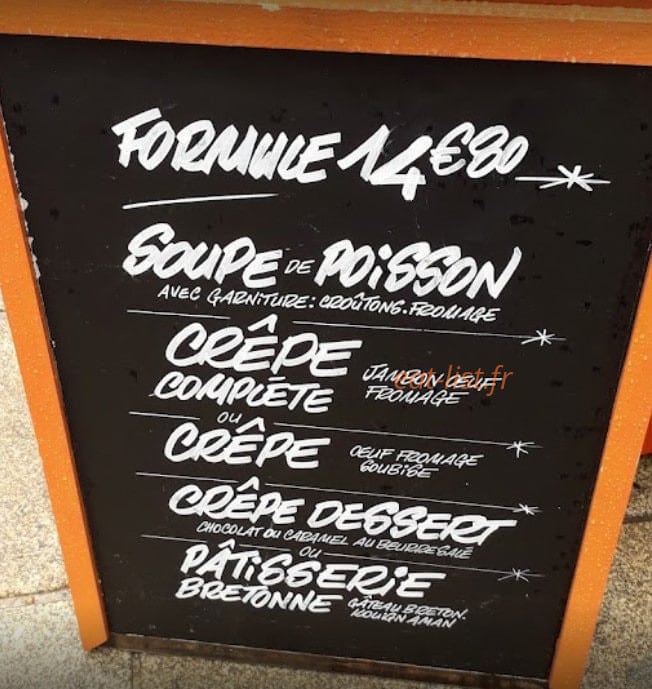 FORMULE 14€80
SOUPE DE POISSON
AVEC GARNITURE: CROÛTONS. FROMAGE
CRÊPE
COMPLÈTE
JAMBON OEUF
FROMAGE
eat-list.fr
OU
CRÊPE
OEUF FROMAGE
SOUBISE
CRÊPE DESSERT
CHOCOLAT OU CARAMEL AU BEURRE SALÉ
OU
PÂTISSERIE
BRETONNE
GÂTEAU BRETON.
KOUIGN AMAN